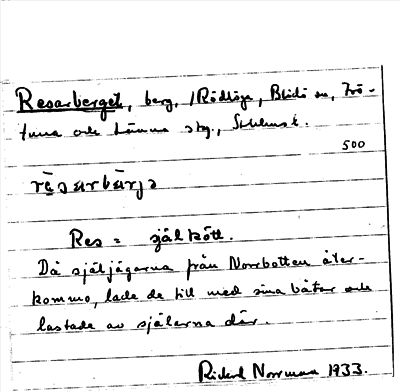 Resarberget, berg, i Rödlöga, Blidö sn, Frö-
tuna och Länna skg., Sthlms l.
500
rèsarbàrjə
Res = själkött.
Då själjägarna från Norrbotten åter-
kommo, lade de till med sina båtar och
lastade av själarna där.
Rickard Norrman 1933.